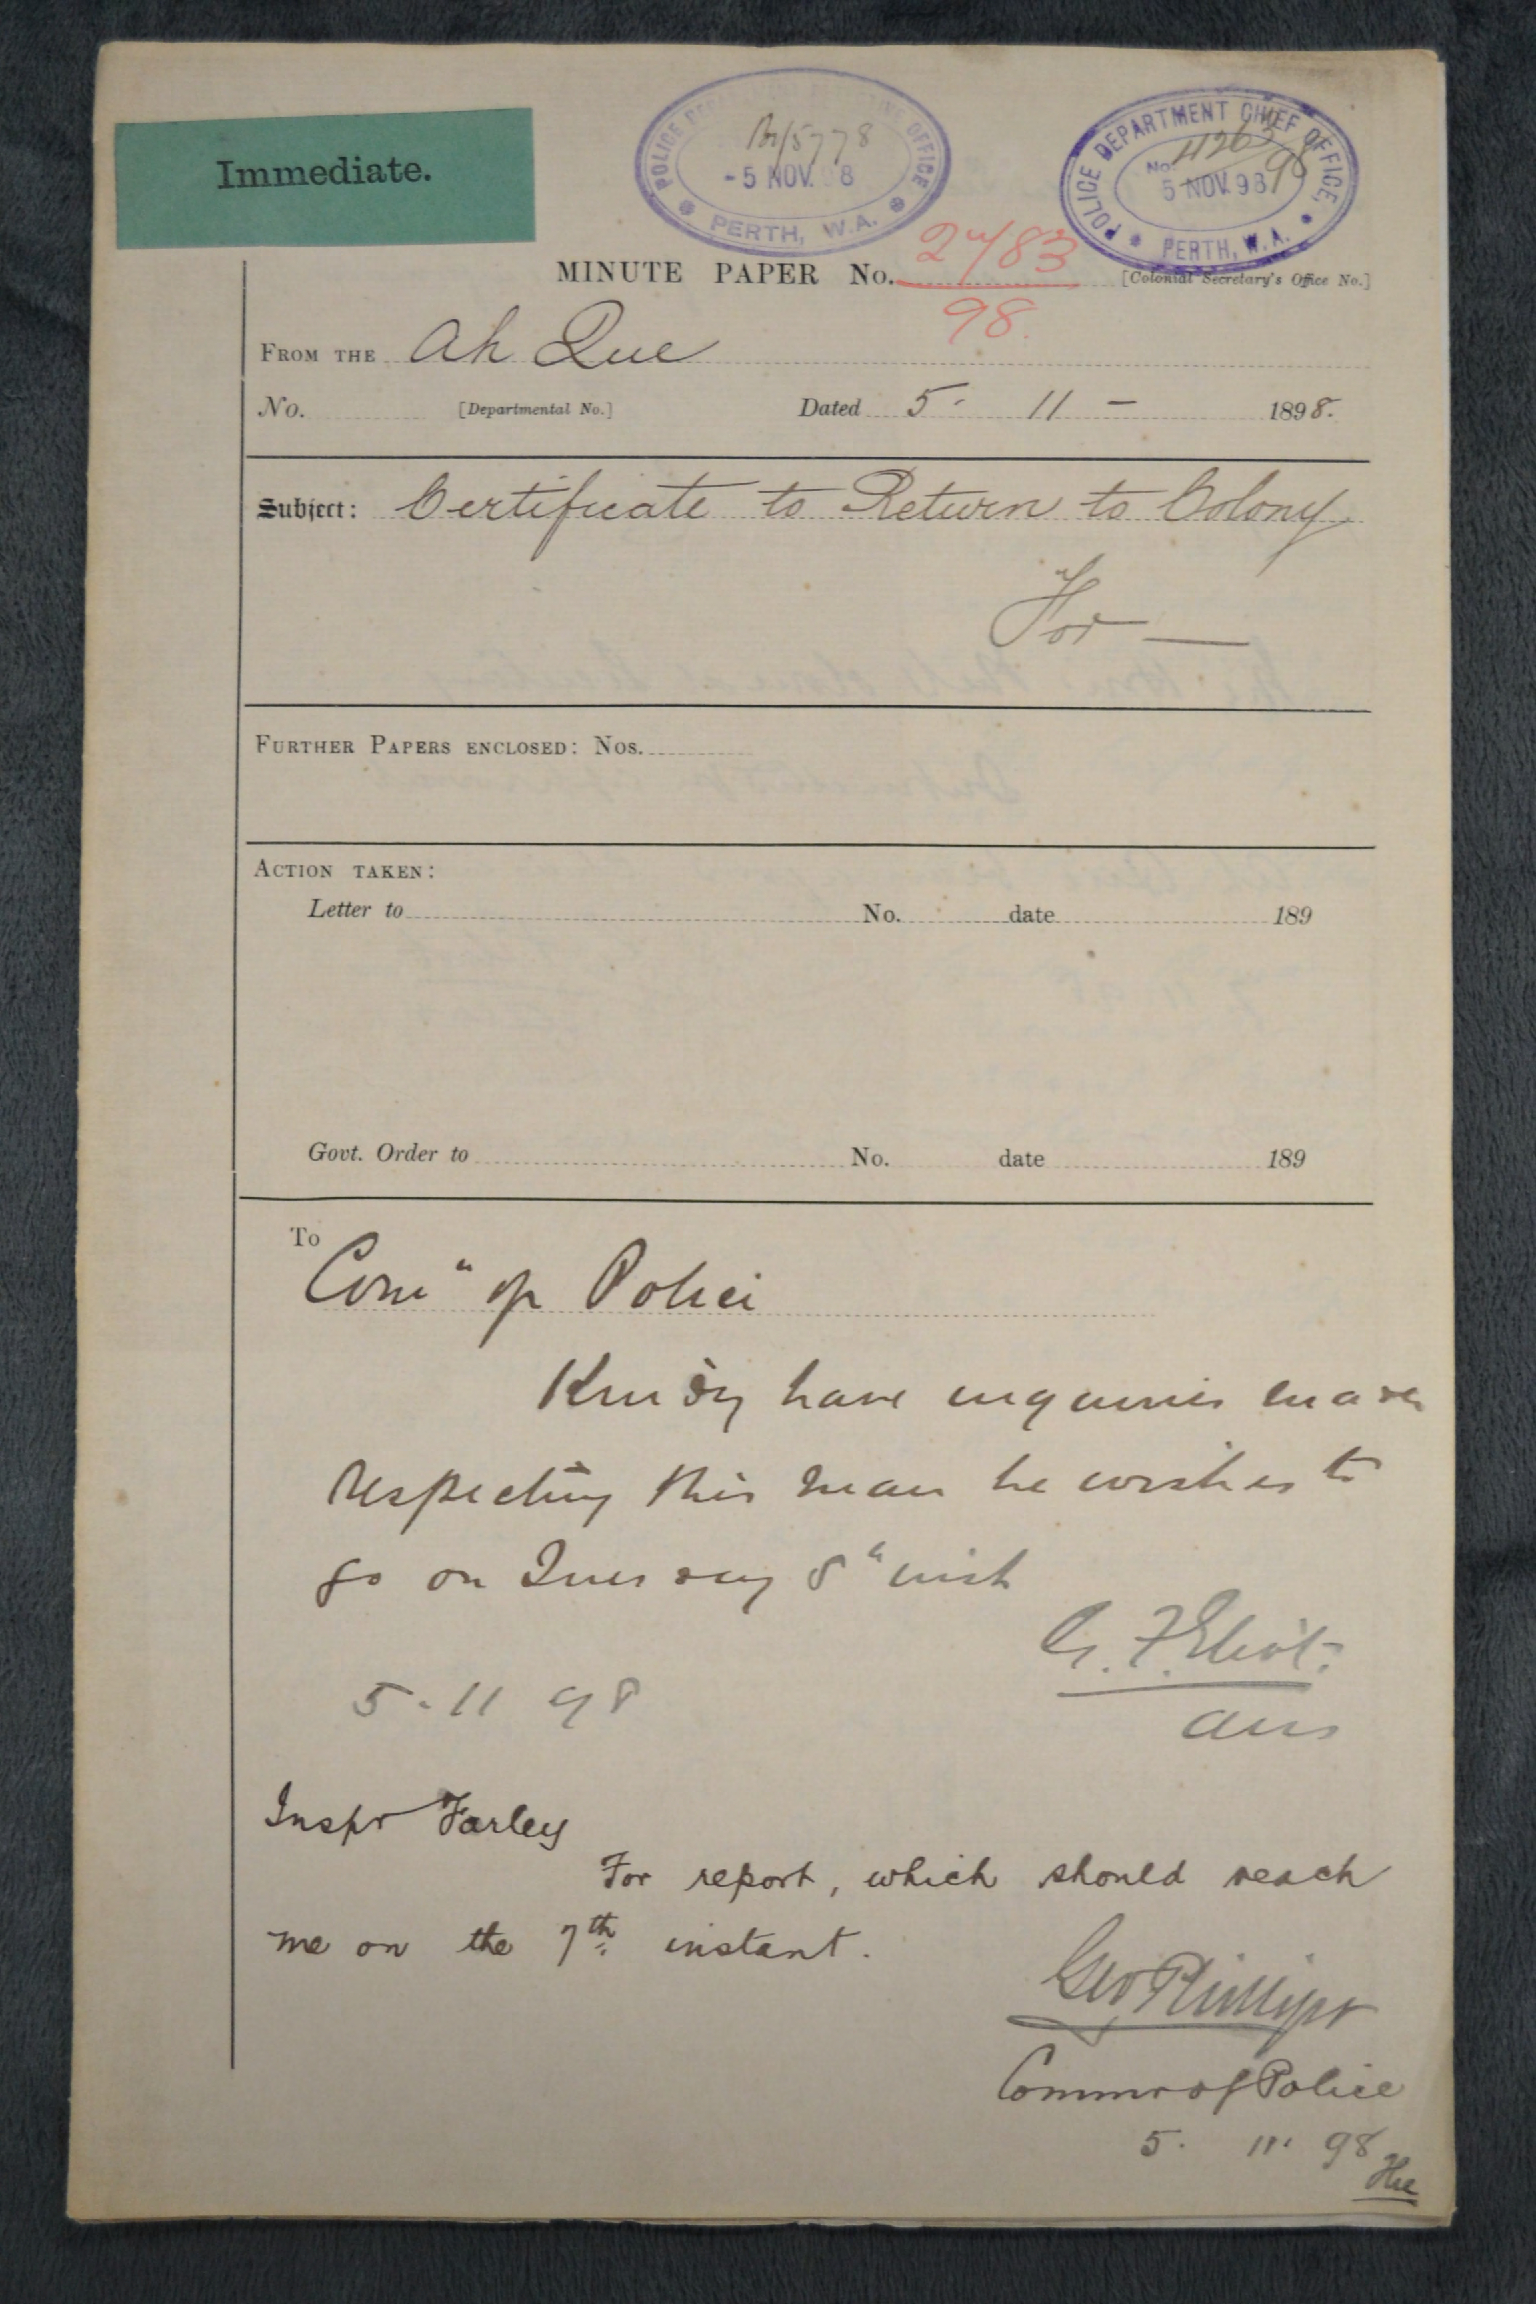 Immediate.
POLICE DEPARTMENT DETECTIVE OFFICE
5778
- 5 NOV. 98
PERTH, W.A.
POLICE DEPARTMENT CHIEF OFFICE,
No. 4263/98
5 NOV. 98
PERTH, W.A.
MINUTE PAPER No. 2783/98. [Colonial Secretary's Office No.]
FROM THE Ah Que
No. [Departmental No.] Dated 5. 11 - 1898.
Subject: Certificate to Return to Colony
For —
FURTHER PAPERS ENCLOSED: Nos.
ACTION TAKEN:
Letter to No. date 189
Govt. Order to No. date 189
To
Comr of Police
Kindly have inquiries made
respecting this man he wishes to
go on Tuesday 8" inst
G. F. Eliot.
5-11 98
Inspr Farley
For report, which should reach
me on the 7th instant.
Geo Phillips
Commr of Police
5. 11. 98